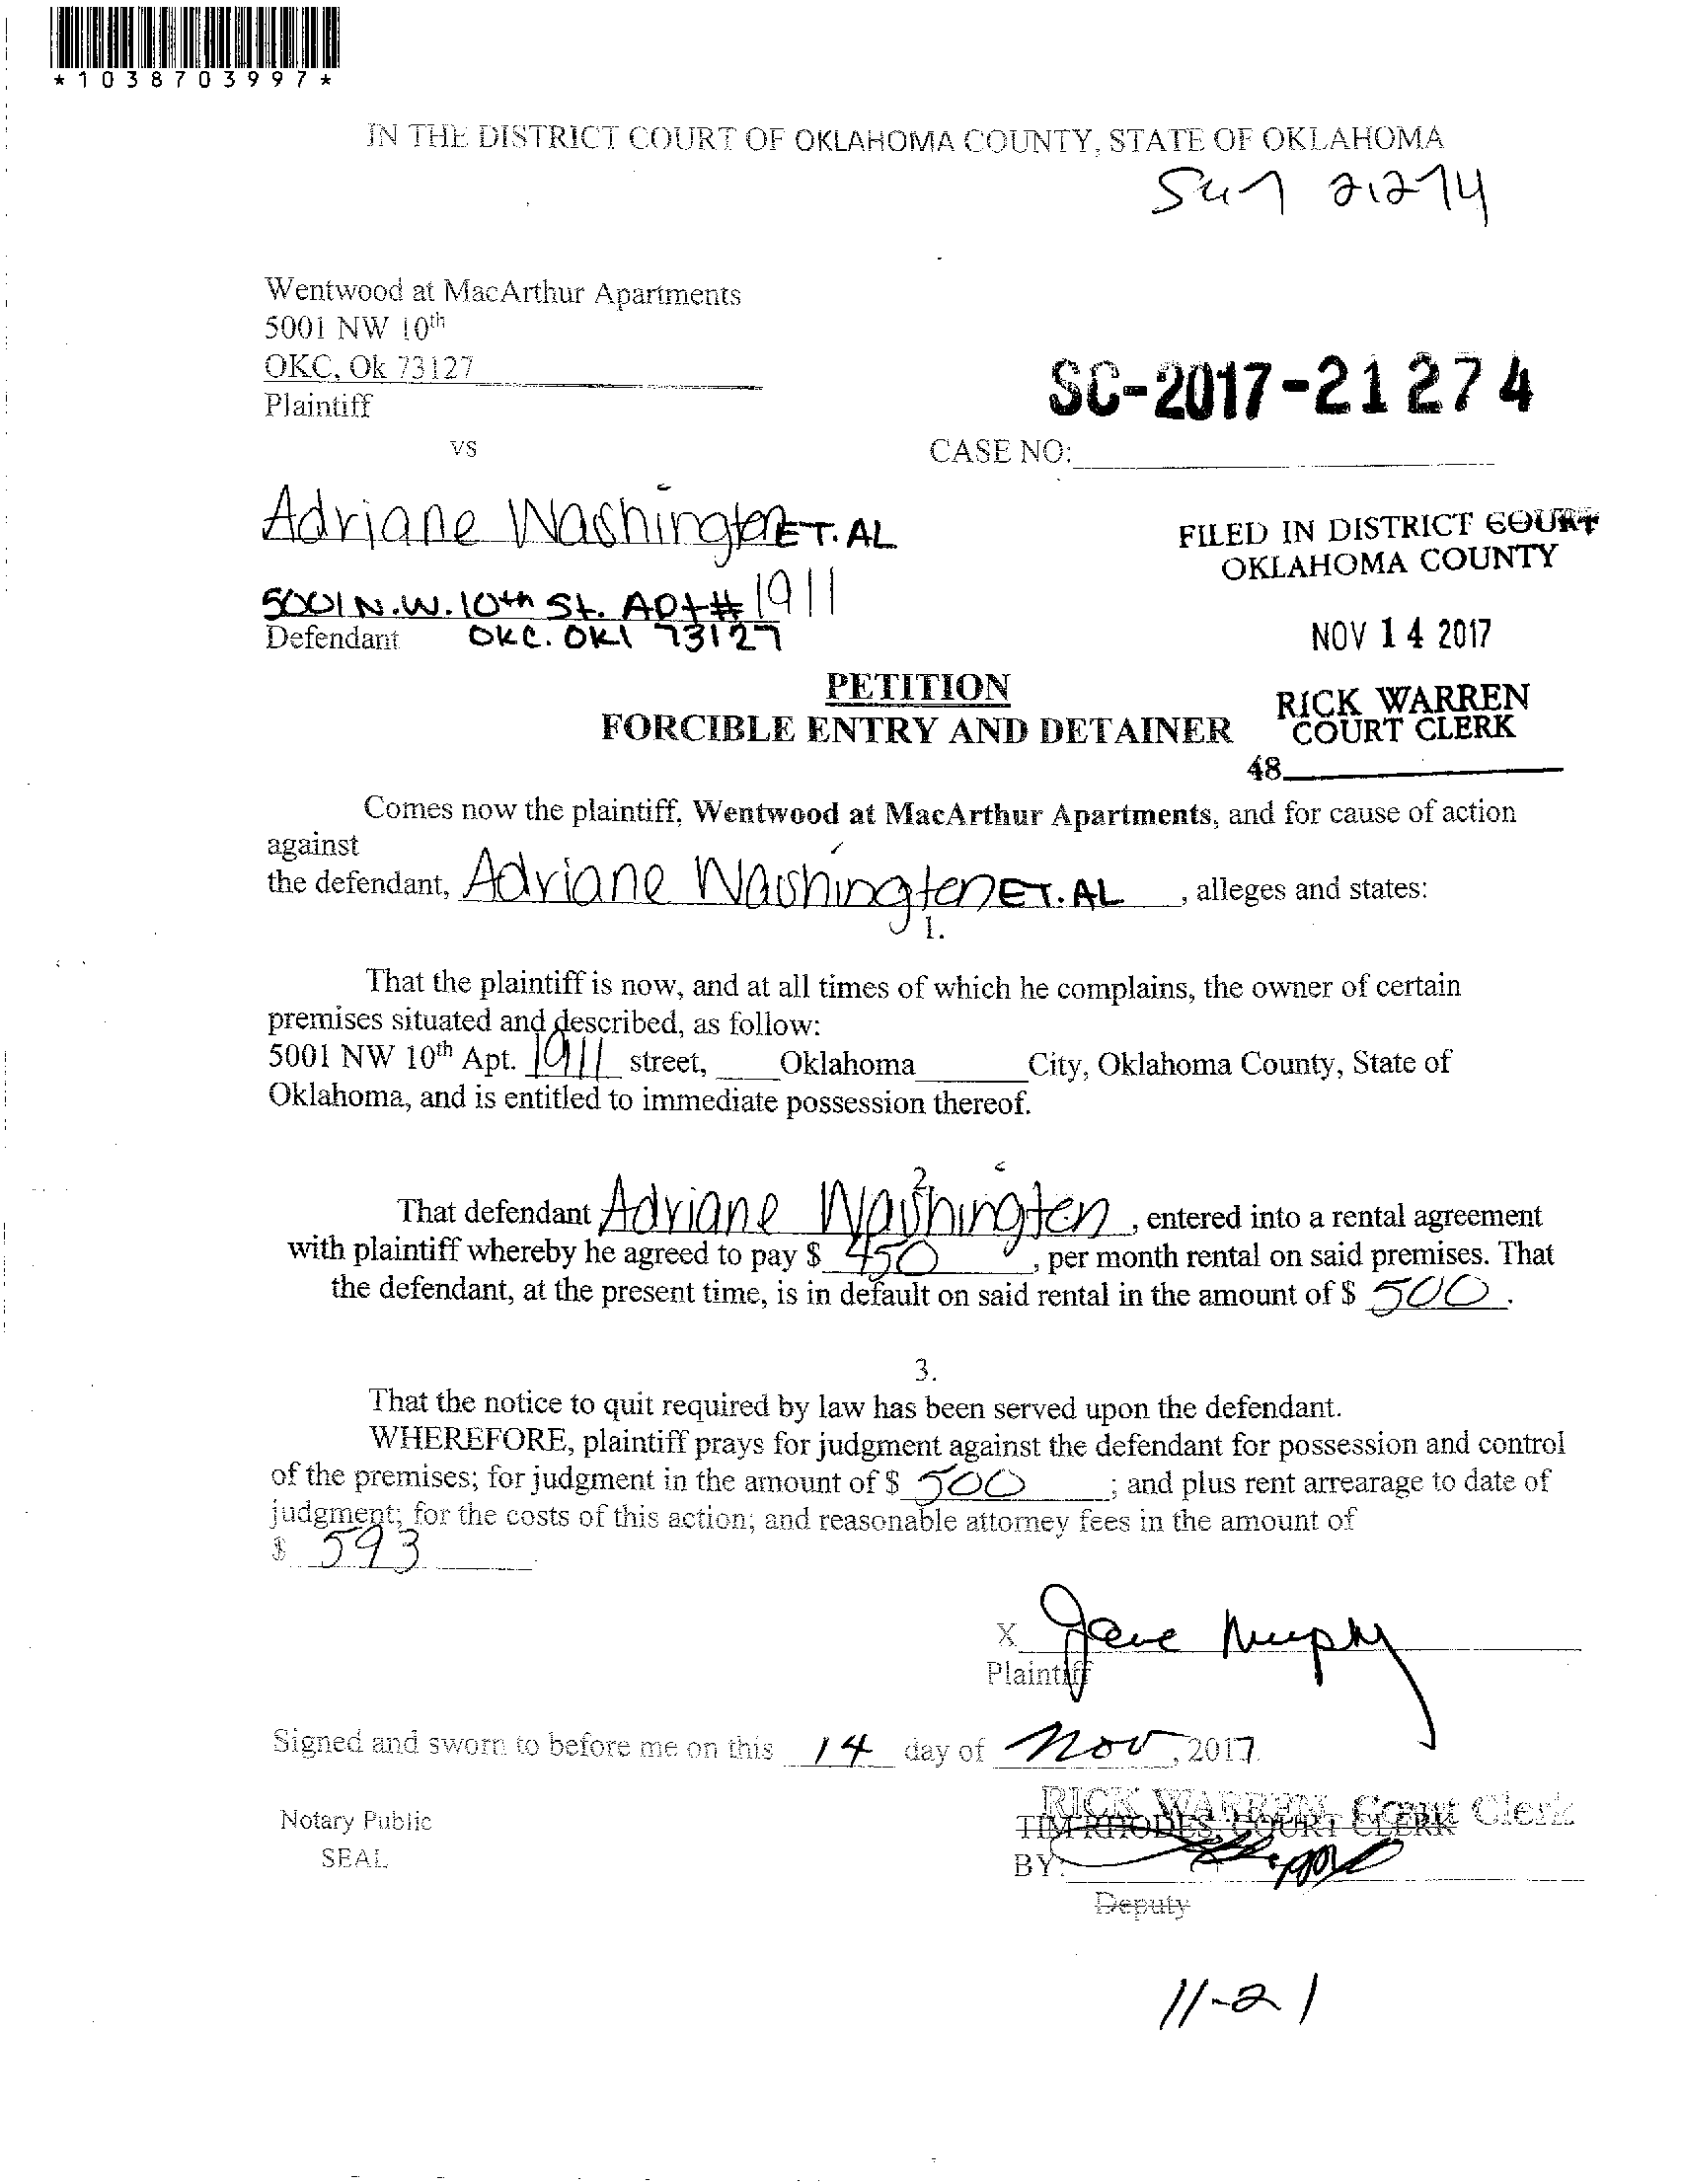 *1038703997*
IN THE DISTRICT COURT OF OKLAHOMA COUNTY, STATE OF OKLAHOMA
21274
Wentwood at MacArthur Apartments
5001 NW 10th
OKC, Ok 73127
Plaintiff
SC-2017-21274
vs
CASE NO:
Adriane Washington ET. AL
FILED IN DISTRICT COURT
OKLAHOMA COUNTY
5001 N.W. 10th St. Apt# 1911
Defendant OKC. OKl 73127
NOV 14 2017
PETITION
RICK WARREN
FORCIBLE ENTRY AND DETAINER
COURT CLERK
48
Comes now the plaintiff, Wentwood at MacArthur Apartments, and for cause of action
against
the defendant, Adriane Washington ET. AL , alleges and states:
1.
That the plaintiff is now, and at all times of which he complains, the owner of certain
premises situated and described, as follow:
5001 NW 10th Apt. 1911 street, Oklahoma City, Oklahoma County, State of
Oklahoma, and is entitled to immediate possession thereof.
2.
That defendant Adriane Washington , entered into a rental agreement
with plaintiff whereby he agreed to pay $ 450 , per month rental on said premises. That
the defendant, at the present time, is in default on said rental in the amount of $ 500 .
3.
That the notice to quit required by law has been served upon the defendant.
WHEREFORE, plaintiff prays for judgment against the defendant for possession and control
of the premises; for judgment in the amount of $ 500 ; and plus rent arrearage to date of
judgment; for the costs of this action; and reasonable attorney fees in the amount of
$ 593
X Jane Murphy
Plaintiff
Signed and sworn to before me on this 14 day of Nov , 2017.
RICK WARREN, Court Clerk
Notary Public
TIM RHODES, COURT CLERK
SEAL
BY:
Deputy
11-21